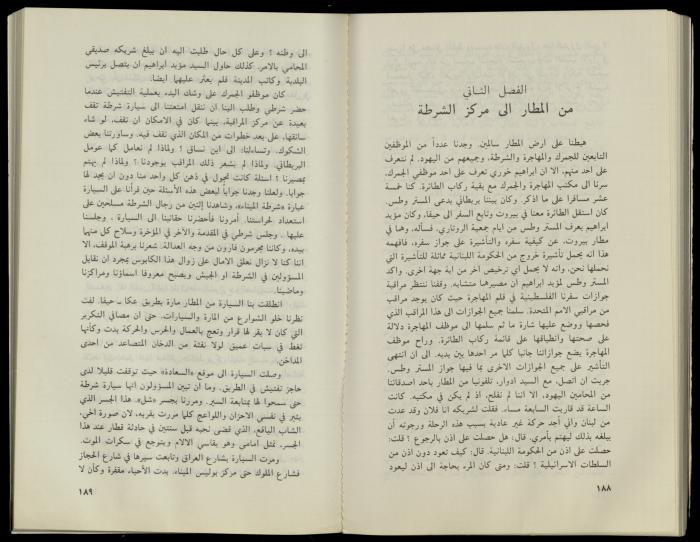 الفصل الثاني
من المطار الى مركز الشرطة
هبطنا على ارض المطار سالمين. وجدنا عدداً من الموظفين
التابعين للجمرك والمهاجرة والشرطة، وجميعهم من اليهود. لم نتعرف
على احد منهم. الا ان ابراهيم خوري تعرف على احد موظفي الجمرك.
سرنا الى مكتب المهاجرة والجمرك مع بقية ركاب الطائرة. كنا خمسة
عشر مسافرا على ما اذكر. وكان بيننا بريطاني يدعى المستر وطس.
كان استقل الطائرة معنا في بيروت وتابع السفر الى حيفا. وكان مؤيد
ابراهيم يعرف المستر وطس من ايام جمعية الروتاري. فسأله، وهما في
مطار بيروت، عن كيفية سفره والتأشيرة على جواز سفره، فافهمه
هذا انه يحمل تأشيرة خروج من الحكومة اللبنانية مماثلة للتأشيرة التي
نحملها نحن، وانه لا يحمل اي ترخيص اخر من اية جهة اخرى. واكد
المستر وطس لمؤيد ابراهيم ان مصيرهما متشابه. وقفنا ننتظر مراقبة
جوازات سفرنا الفلسطينية في قلم المهاجرة حيث كان يوجد مراقب
من مراقبي الامم المتحدة. سلمنا جميع الجوازات الى هذا المراقب الذي
فحصها ووضع عليها شارة ما ثم سلمها الى موظف المهاجرة دلالة
على صحتها وانطباقها على قائمة ركاب الطائرة. وراح موظف
المهاجرة يضع جوازاتنا جانبا كلما مر احدها بين يديه. الى ان انتهى
التأشير على جميع الجوازات الاخرى بما فيها جواز المستر وطس.
جربت ان اتصل، مع السيد ادوار، تلفونيا من المطار باحد اصدقائنا
من المحامين اليهود، الا اننا لم نفلح، اذ لم يكن في مكتبه. كانت
الساعة قد قاربت السابعة مساء. فقلت لشريكه انا فلان وقد عدت
من لبنان واني أجد حركة غير عادية بسبب هذه الرحلة ورجوته أن
يبلغه بذلك ليهتم بأمري. قال: هل حصلت على اذن بالرجوع ؟ قلت:
حصلت على اذن من الحكومة اللبنانية. قال: كيف تعود دون اذن من
السلطات الاسرائيلية ؟ قلت: ومتى كان المرء بحاجة الى اذن ليعود
١٨٨
الى وطنه ؟ وعلى كل حال طلبت اليه ان يبلغ شريكه صديقي
المحامي بالامر. كذلك حاول السيد مؤيد ابراهيم ان يتصل برئيس
البلدية وكاتب المدينة فلم يعثر عليهما ايضا.
كان موظفو الجمرك على وشك البدء بعملية التفتيش عندما
حضر شرطي وطلب الينا ان ننقل امتعتنا الى سيارة شرطة تقف
بعيدة عن مركز المراقبة، بينما كان في الامكان ان تقف، لو شاء
سائقها، على بعد خطوات من المكان الذي نقف فيه. وساورتنا بعض
الشكوك. وتساءلنا: الى اين نساق ؟ ولماذا لم نعامل كما عومل
البريطاني. ولماذا لم يشعر ذلك المراقب بوجودنا ؟ ولماذا لم يهتم
بمصيرنا ؟ اسئلة كانت تجول في ذهن كل واحد منا دون ان يجد لها
جوابا. ولعلنا وجدنا جواباً لبعض هذه الأسئلة حين قرأنا على السيارة
عبارة «شرطة الميناء»، وشاهدنا إثنين من رجال الشرطة مسلحين على
استعداد لحراستنا. أمرونا فأحضرنا حقائبنا الى السيارة ، وجلسنا
عليها . وجلس شرطي في المقدمة والآخر في المؤخرة وسلاح كل منهما
بيده، وكأننا مجرمون فارون من وجه العدالة. شعرنا برهبة الموقف، الا
اننا كنا لا نزال نعلق الآمال على زوال هذا الكابوس بمجرد ان نقابل
المسؤولين في الشرطة او الجيش ويصبح معروفا اسماؤنا ومراكزنا
وماضينا.
انطلقت بنا السيارة من المطار مارة بطريق عكا ـ حيفا. لفت
نظرنا خلو الشوارع من المارة والسيارات. حتى ان مصافي التكرير
التي كان لا يقر لها قرار وتعج بالعمال والحرس والحركة بدت وكأنها
تغط في سبات عميق لولا نفثة من الدخان المتصاعد من احدى
المداخن.
وصلت السيارة الى موقع «السعادة» حيث توقفت قليلا لدى
حاجز تفتيش في الطريق. وما ان تبين المسؤولون انها سيارة شرطة
حتى سمحوا لها بمتابعة السير. ومررنا بجسر «شل». هذا الجسر الذي
يثير في نفسي الاحزان واللواعج كلما مررت بقربه، لان صورة اخي،
الشاب اليافع، الذي قضى نحبه قبل سنتين في حادثة قطار عند هذا
الجسر، تمثل امامي وهو يقاسي الآلام ويتوجع في سكرات الموت.
ومرت السيارة بشارع العراق وتابعت سيرها في شارع الحجاز
فشارع الملوك حتى مركز بوليس الميناء. بدت الأحياء مقفرة وكأن لا
١٨٩